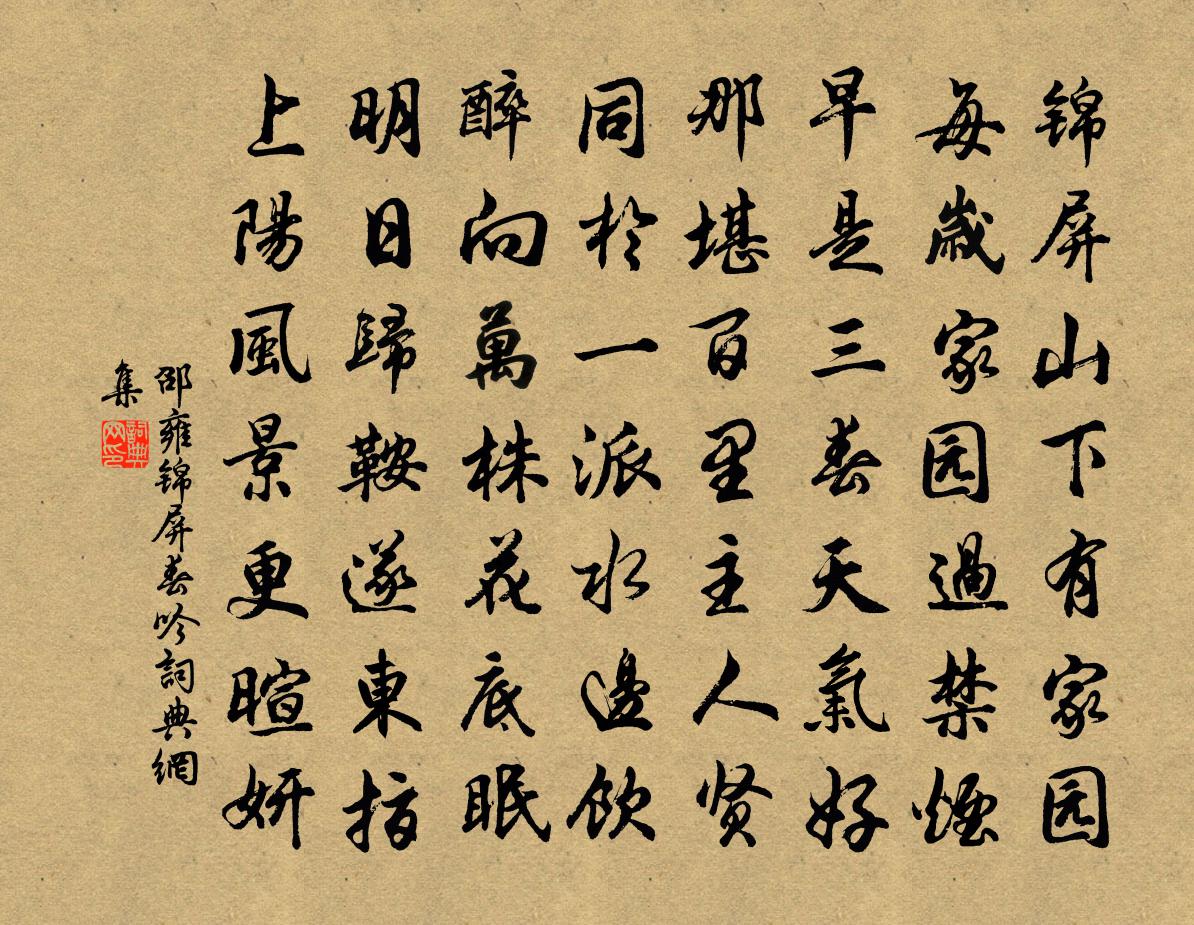 锦屏山下有家园
每歲家园過禁煙
早是三春天氣好
那堪百里主人贤
同於一派水邊飲
醉向萬株花底眠
明日歸鞍遂東指
上陽風景更暄妍
邵雍锦屏春吟詞典網
集
詞典
网印